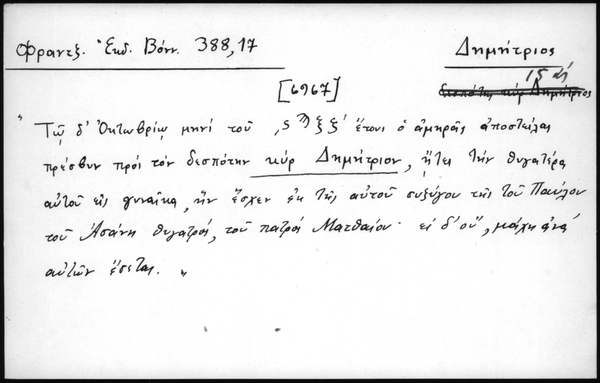 Φραντζ. Ἐκδ. Βόνν. 388,17
Δημήτριος
15 αἰ
δεσπότης κύρ Δημήτριος
[6967]
" Τῷ δ' Ὀκτωβρίῳ μηνί τοῦ ,ςϠξζ' ἔτους ὁ ἀμηρᾶς ἀποστείλας
πρέσβυν πρός τόν δεσπότην κύρ Δημήτριον, ᾔτει τήν θυγατέρα
αὐτοῦ εἰς γυναῖκα, ἥν ἔσχεν ἐκ τῆς αὐτοῦ συζύγου τῆς τοῦ Παύλου
τοῦ Ἀσάνη θυγατρός, τοῦ πατρός Ματθαίου· εἰ δ' οὔ, μάχη ἀνά
αὐτῶν ἔσεται. "